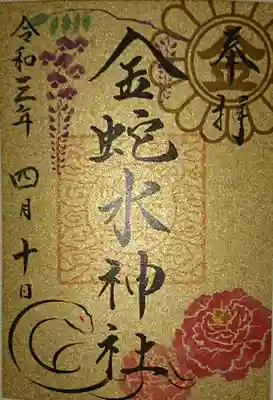 奉拝
金蛇水神社
令和三年
四月十日